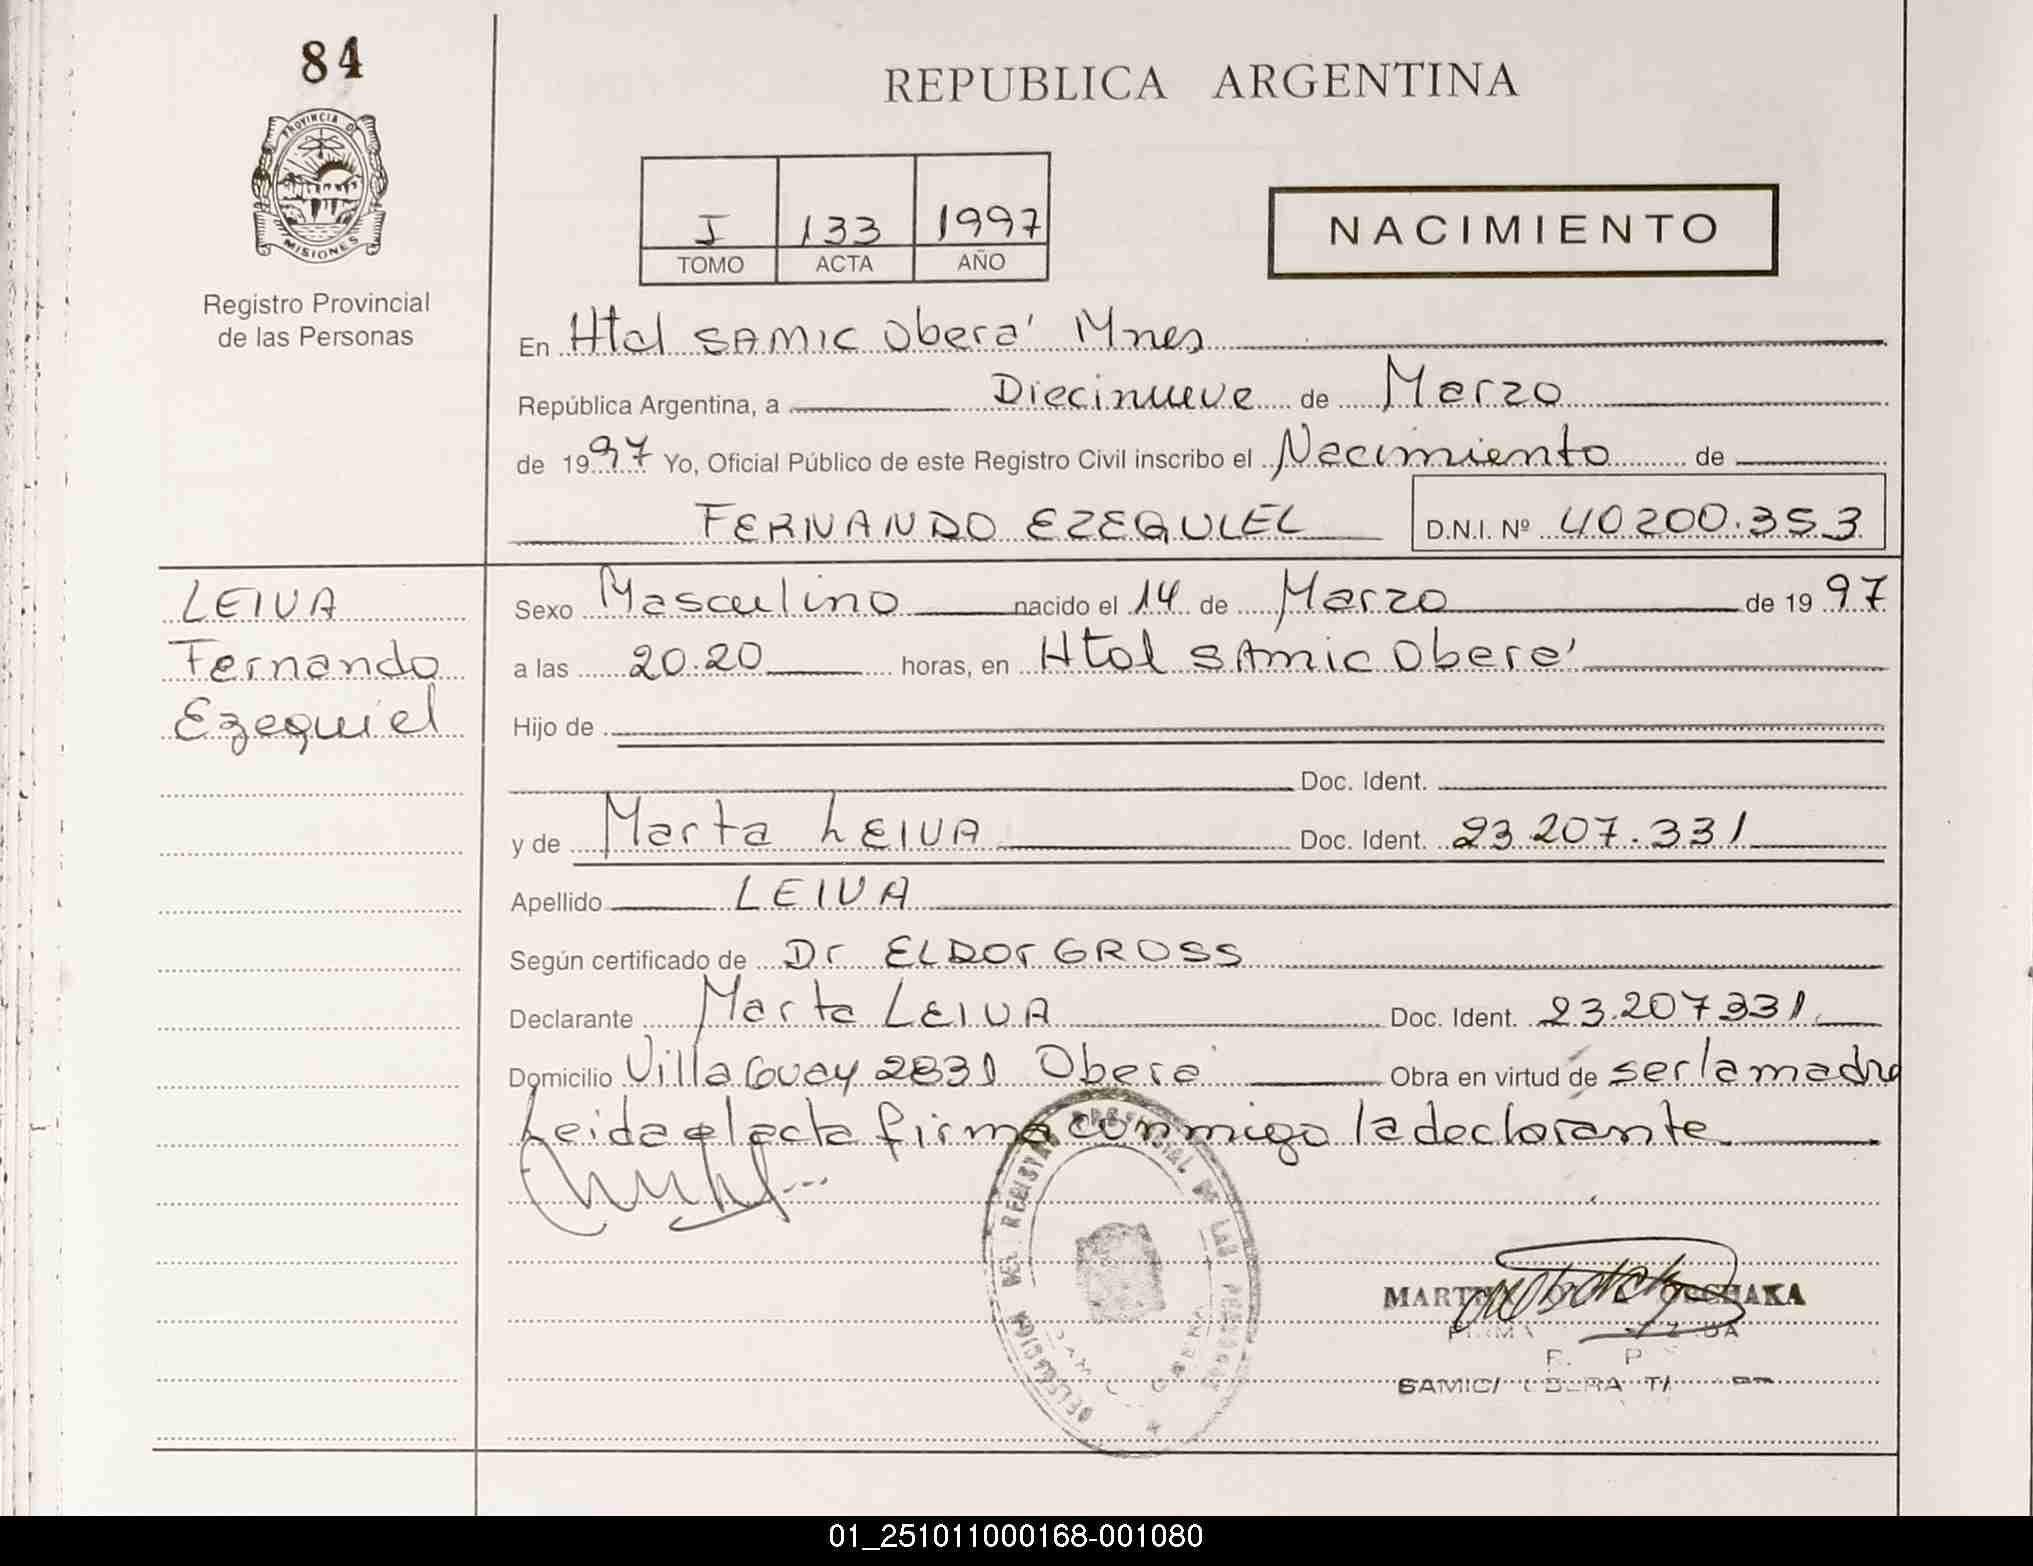 84
REPUBLICA ARGENTINA
PROVINCIA DE
MISIONES
Registro Provincial
de las Personas
I 133 1997
TOMO ACTA AÑO
NACIMIENTO
En Htal SAMIC Oberá Mnes
República Argentina, a Diecinueve de Marzo
de 1997 Yo, Oficial Público de este Registro Civil inscribo el Nacimiento de
FERNANDO EZEQUIEL D.N.I. Nº 40200.353
LEIVA
Fernando
Ezequiel
Sexo Masculino nacido el 14 de Marzo de 1997
a las 20.20 horas, en Htal SAMIC Oberá
Hijo de
Doc. Ident.
y de Marta LEIVA Doc. Ident. 23.207.331
Apellido LEIVA
Según certificado de Dr ELDOR GROSS
Declarante Marta LEIVA Doc. Ident. 23.207331
Domicilio Villaguay 2831 Oberá Obra en virtud de ser la madre
Leida el acta firma conmigo la declarante
DELEGACION DEL REGISTRO PROVINCIAL DE LAS PERSONAS
OBERA
SAMIC
01_251011000168-001080